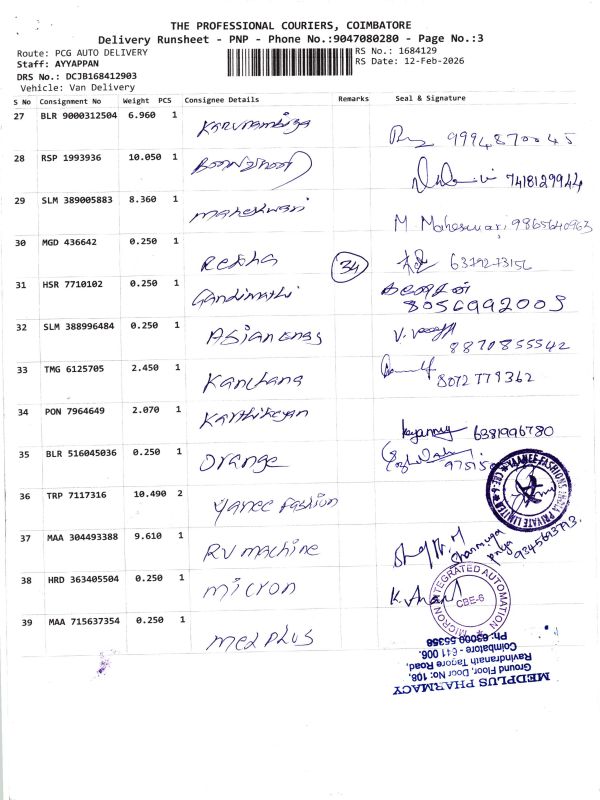 THE PROFESSIONAL COURIERS, COIMBATORE
Delivery Runsheet - PNP - Phone No.:9047080280 - Page No.:3
Route: PCG AUTO DELIVERY
RS No.: 1684129
Staff: AYYAPPAN
RS Date: 12-Feb-2026
DRS No.: DCJB168412903
Vehicle: Van Delivery
S No Consignment No Weight PCS Consignee Details Remarks Seal & Signature
27 BLR 9000312504 6.960 1 Karunambiga 9994870045
28 RSP 1993936 10.050 1 7418129944
29 SLM 389005883 8.360 1 maheshwari M Maheswari 9865640963
30 MGD 436642 0.250 1 Rekha 34 6379273156
31 HSR 7710102 0.250 1 Gandimathi 8056992005
32 SLM 388996484 0.250 1 Asian engs 8870855542
33 TMG 6125705 2.450 1 Kanchana 8072779362
34 PON 7964649 2.070 1 Karthikeyan 6381996780
35 BLR 516045036 0.250 1 Orange 97515
36 TRP 7117316 10.490 2 yanee Fashion
YANEE FASHIONS INDIA PRIVATE LIMITED
37 MAA 304493388 9.610 1 RV machine Shanmuga priya 9345613713
38 HRD 363405504 0.250 1 micron K. Anand
MICRON INTEGRATED AUTOMATION
CBE-6
39 MAA 715637354 0.250 1 medplus
MEDPLUS PHARMACY
Ground Floor, Door No: 108,
Ravindranath Tagore Road,
Coimbatore - 641 006.
Ph: 63009 55358